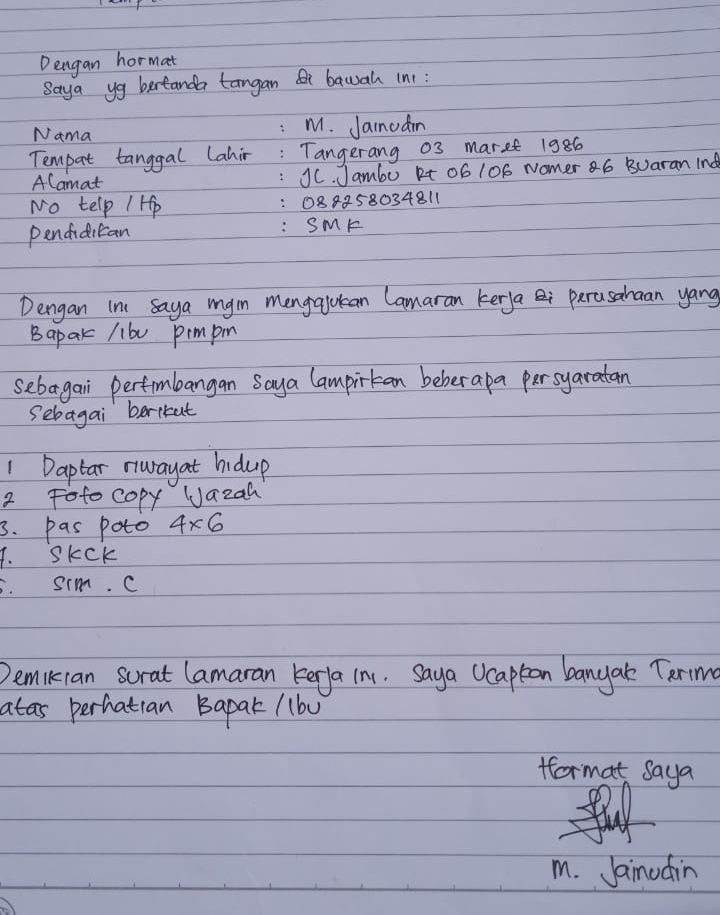 Dengan hormat
Saya yg bertanda tangan di bawah ini :
Nama : M. Jainudin
Tempat tanggal lahir : Tangerang 03 maret 1986
Alamat : JL. Jambu Rt 06/06 Nomer 26 Buaran Ind
No telp / Hp : 088258034811
Pendidikan : SMK
Dengan ini saya ingin mengajukan lamaran kerja di perusahaan yang
Bapak /ibu pimpin
Sebagai pertimbangan saya lampirkan beberapa persyaratan
Sebagai berikut
1 Daptar riwayat hidup
2 Foto copy Ijazah
3. pas poto 4x6
4. SKCK
5. Sim . C
Demikian surat lamaran kerja ini. saya Ucapkan banyak Terima
atas perhatian Bapak / Ibu
Hormat saya
M. Jainudin